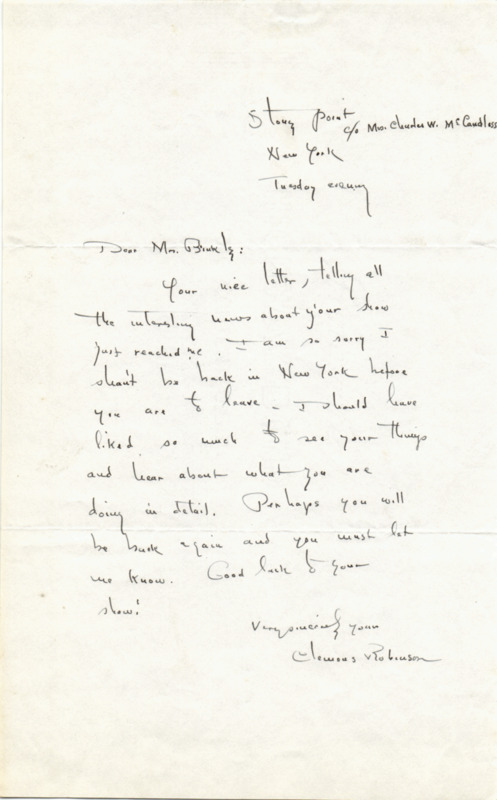 Stony Point
c/o Mrs. Charles W. McCandless
New York
Tuesday evening
Dear Mrs. Binkly:
Your nice letter, telling all
the interesting news about your show
just reached me. I am so sorry I
shan't be back in New York before
you are to leave. I should have
liked so much to see your things
and hear about what you are
doing in detail. Perhaps you will
be back again and you must let
me know. Good luck to your
show!
Very sincerely yours
Clemens Robinson